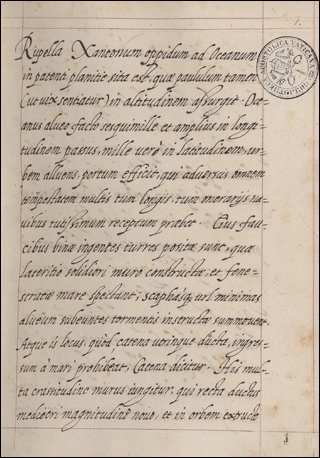 1.
Rupella Xantonum oppidum ad Oceanum
in patenti planitie sita est, quæ paululum tamen
(ut vix sentiatur) in altitudinem assurgit. Oce-
anus alveo facto sesquimille et amplius in longi-
tudinem passus, mille verò in latitudinem, ur-
bem alluens, portum efficit, qui adversus omnem
tempestatem multis tum longis, tum onerarijs na-
vibus tutissimum receptum præbet. Eius fau-
cibus binæ ingentes turres positæ sunt, quæ
lateritio solidiori muro constructæ, et fene-
stratæ mare spectant; scaphasq; vel minimas
alveum subeuntes tormentis instructæ summovent.
Atque is locus, quòd catena utrinque ducta, ingres-
sum à mari prohibeat, Catena dicitur. His mul-
ta crassitudine murus iungitur, qui recta ductus
mediocri magnitudine novo, et in orbem extructo
1